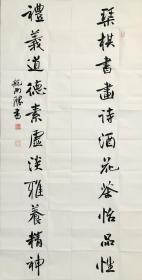 琴棋書畫詩酒花茶怡品性
禮義道德素虛淡雅養精神